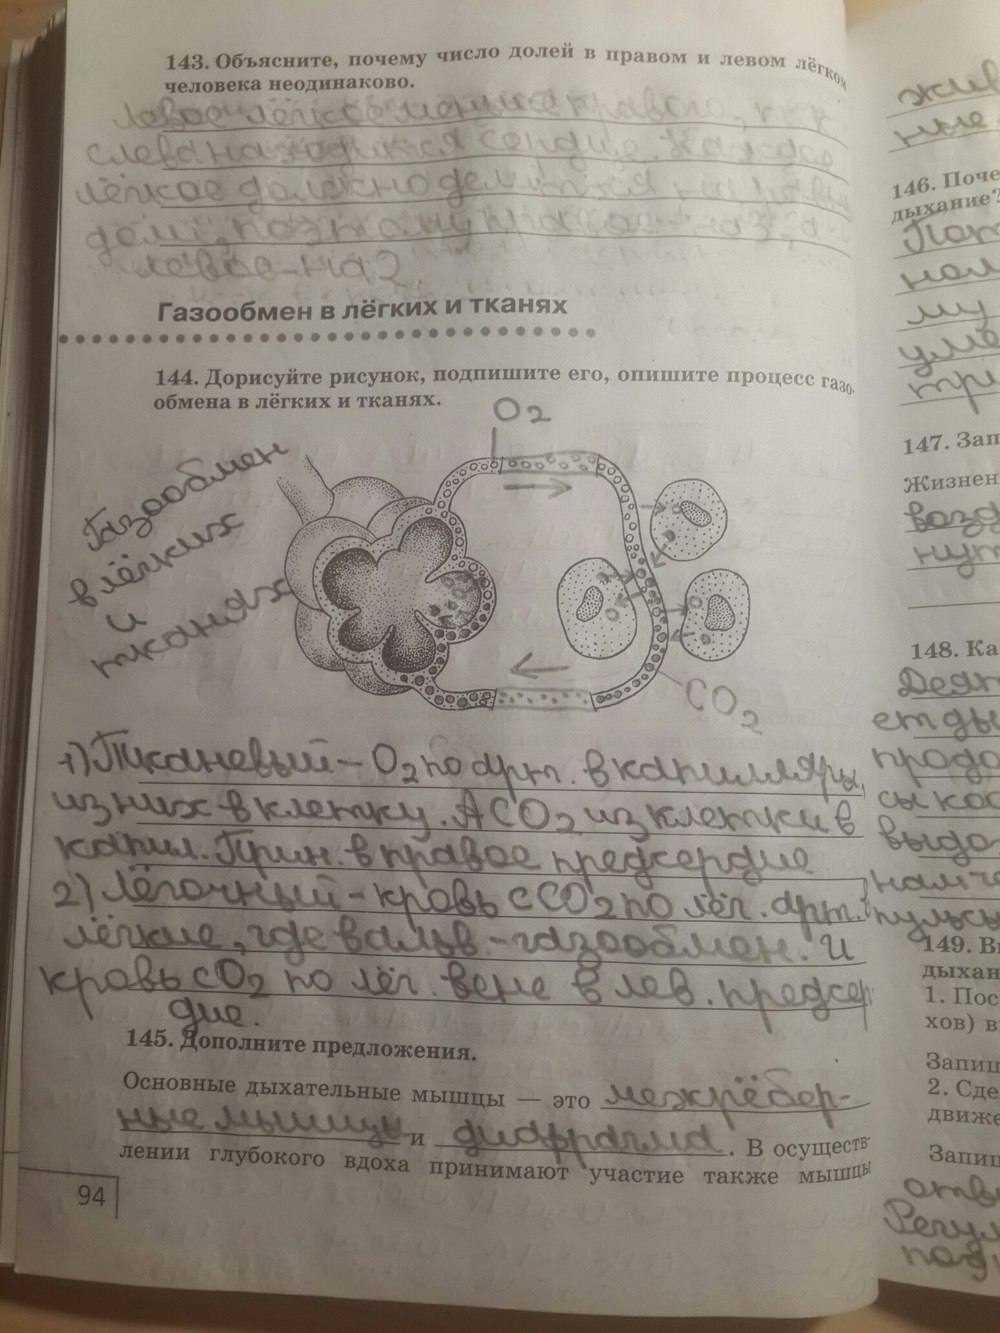 143. Объясните, почему число долей в правом и левом лёгком
человека неодинаково.
Левое лёгкое меньше правого, т.к
слева находится сердце. Каждое
лёгкое должно делиться на
доли, поэтому правое-на 3, а
левое-на 2.
Газообмен в лёгких и тканях
144. Дорисуйте рисунок, подпишите его, опишите процесс газо-
обмена в лёгких и тканях.
O2
Газообмен
в лёгких
и
тканях
CO2
1) Тканевый - O2 по арт. в капилляры,
из них в клетку. А CO2 из клетки в
капил. Прин. в правое предсердие
2) Лёгочный - кровь с CO2 по лёг. арт. в
лёгкие, где в альв - газообмен. И
кровь с O2 по лёг. вене в лев. предсер
дие.
145. Дополните предложения.
Основные дыхательные мышцы — это межрёбер-
ные мышцы и диафрагма. В осуществ-
лении глубокого вдоха принимают участие также мышцы
94
жив
ные
146. Поче
дыхание?
Пот
нал
му
уме
при
147. Зап
Жизнен
возд
нут
148. Ка
Деят
ет ды
продо
сы кос
выдо
нам ч
пульсы
149. В
дыхан
1. Пос
хов) в
Запиш
2. Сде
движе
Запиш
отв
Регул
под